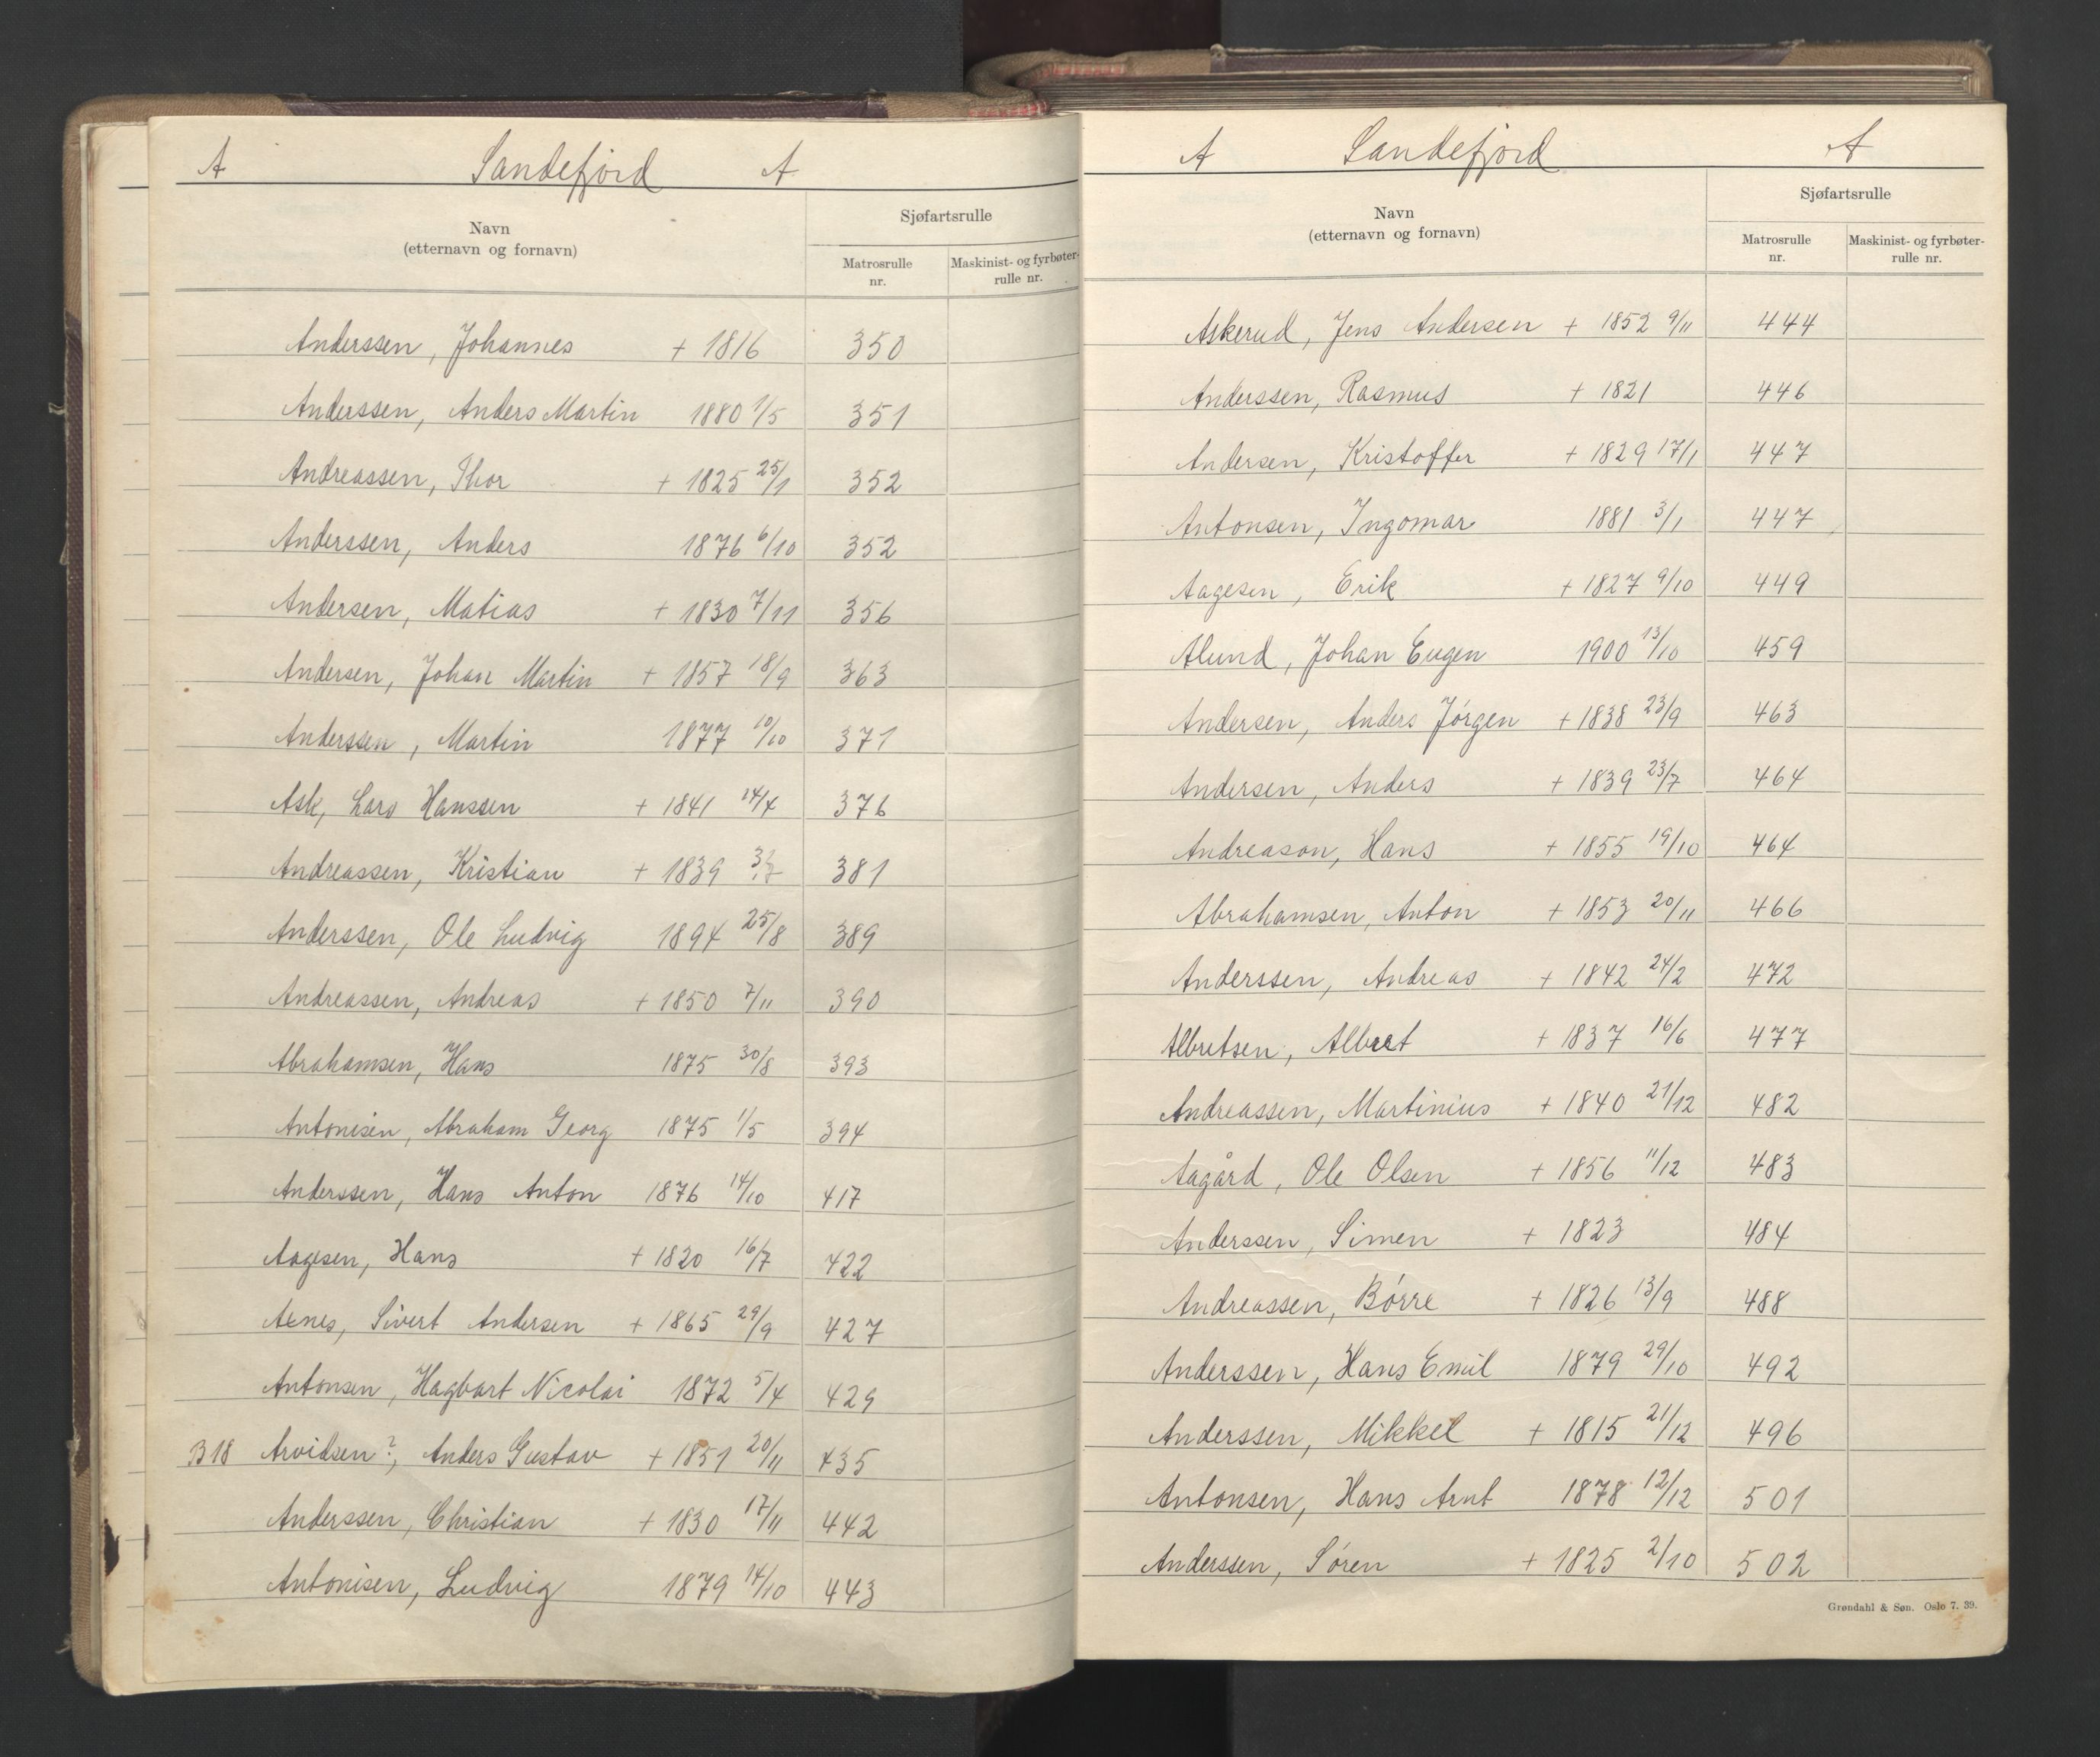 A Sandefjord A
Navn
(etternavn og fornavn)
Sjøfartsrulle
Matrosrulle
nr.
Maskinist- og fyrbøter-
rulle nr.
Anderssen, Johannes + 1816 350
Anderssen, Anders Martin 1880 1/5 351
Andreassen, Thor + 1825 25/1 352
Anderssen, Anders 1876 6/10 352
Andersen, Matias + 1830 7/11 356
Andersen, Johan Martin + 1857 18/9 363
Anderssen, Martin 1877 10/10 371
Ask, Lars Hanssen + 1841 14/4 376
Andreassen, Kristian + 1839 381
Anderssen, Ole Ludvig 1894 25/8 389
Andreassen, Andreas + 1850 7/11 390
Abrahamsen, Hans 1875 30/8 393
Antonisen, Abraham Georg 1875 1/5 394
Anderssen, Hans Anton 1876 14/10 417
Aagesen, Hans + 1820 16/7 422
Aenes, Sivert Andersen + 1865 29/9 427
Antonsen, Hagbart Nicolai 1872 5/4 429
B18 Arvidsen?, Anders Gustav + 1851 20/11 435
Anderssen, Christian + 1830 17/11 442
Antonisen, Ludvig 1879 14/10 443
A Sandefjord A
Navn
(etternavn og fornavn)
Sjøfartsrulle
Matrosrulle
nr.
Maskinist- og fyrbøter-
rulle nr.
Askerud, Jens Andersen + 1852 9/11 444
Anderssen, Rasmus + 1821 446
Andersen, Kristoffer + 1829 17/1 447
Antonsen, Ingomar 1881 3/1 447
Aagesen, Erik + 1827 9/10 449
Alund, Johan Eugen 1900 13/10 459
Andersen, Anders Jørgen + 1838 23/9 463
Andersen, Anders + 1839 23/7 464
Andreason, Hans + 1855 19/10 464
Abrahamsen, Anton + 1853 20/11 466
Anderssen, Andreas + 1842 24/2 472
Albretsen, Albret + 1837 16/6 477
Andreassen, Martinius + 1840 21/12 482
Aagård, Ole Olsen + 1856 11/12 483
Anderssen, Simen + 1823 484
Andreassen, Børre + 1826 13/9 488
Anderssen, Hans Emil 1879 29/10 492
Anderssen, Mikkel + 1815 21/12 496
Antonsen, Hans Arnt 1878 12/12 501
Anderssen, Søren + 1825 2/10 502
Grøndahl & Søn. Oslo 7. 39.